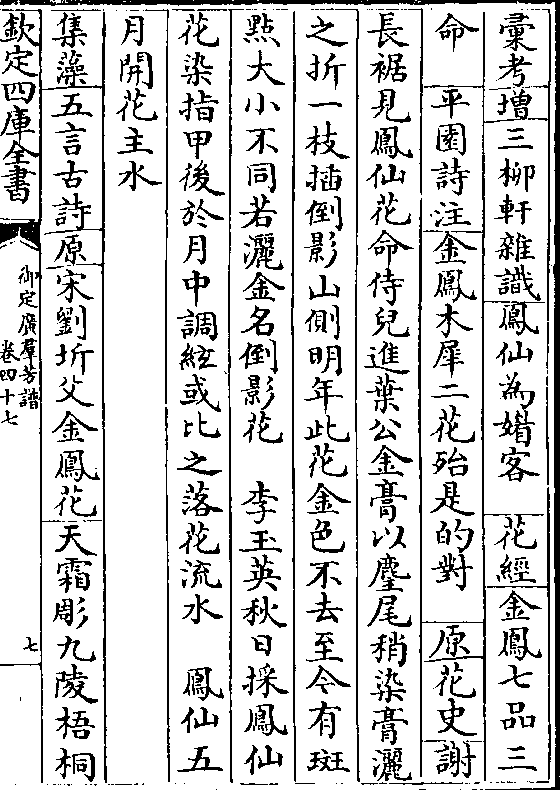 彙考增三柳軒雜識鳳仙為媚客　花經金鳳七品三
命　平園詩注金鳳木犀二花殆是的對　原花史謝
長裾見鳳仙花命侍兒進葉公金膏以麈尾稍染膏灑
之折一枝插倒影山側明年此花金色不去至今有斑
點大小不同若灑金名倒影花　李玉英秋日採鳳仙
花染指甲後於月中調絃或比之落花流水　鳳仙五
月開花主水
集藻五言古詩原宋劉圻父金鳳花天霜彫九陵梧桐
欽定四庫全書
御定廣羣芳譜
卷四十七
七